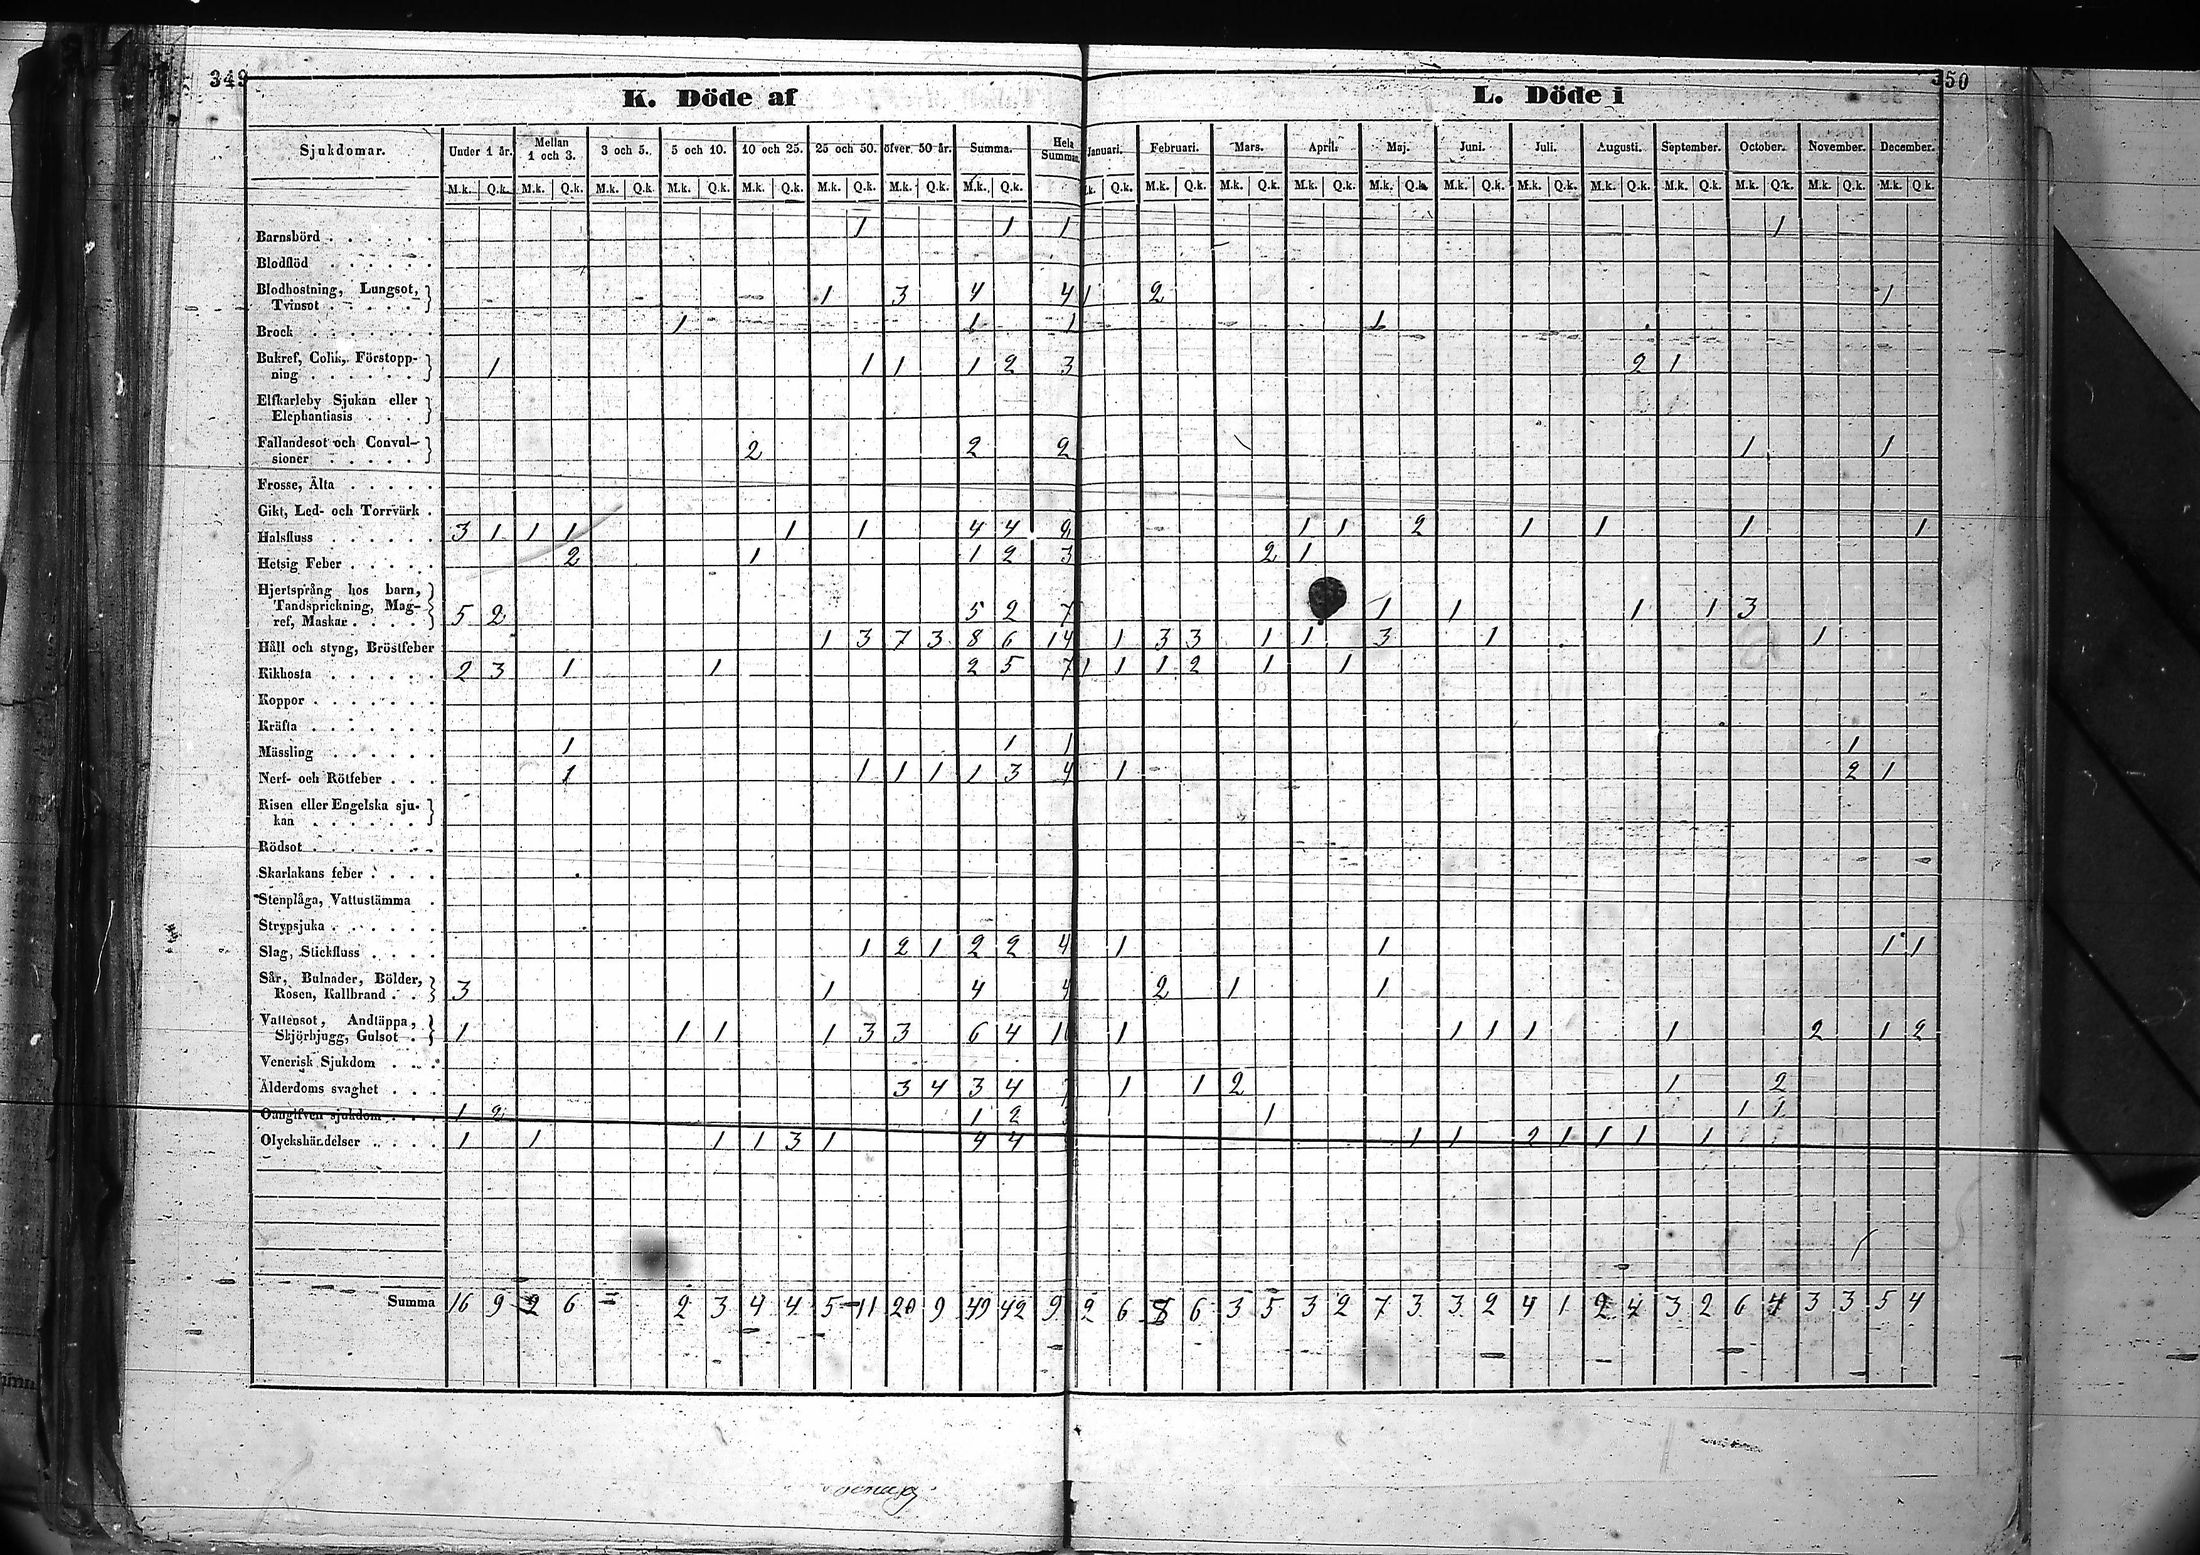 349
350
K. Döde af
L. Döde i
Sjukdomar. Under 1 år. Mellan 1 och 3. 3 och 5. 5 och 10. 10 och 25. 25 och 50. öfver 50 år. Summa. Hela Summan. Januari. Februari. Mars. April. Maj. Juni. Juli. Augusti. September. October. November. December.
M.k. Q.k. M.k. Q.k. M.k. Q.k. M.k. Q.k. M.k. Q.k. M.k. Q.k. M.k. Q.k. M.k. Q.k. M.k. Q.k. M.k. Q.k. M.k. Q.k. M.k. Q.k. M.k. Q.k. M.k. Q.k. M.k. Q.k. M.k. Q.k. M.k. Q.k. M.k. Q.k. M.k. Q.k. M.k. Q.k.
Barnsbörd 1 1 1 1
Blodflöd
Blodhostning, Lungsot,
Tvinsot 1 3 4 4 1 2 1
Brock 1 1 1 1
Bukref, Colik, Förstopp-
ning 1 1 1 1 2 3 2 1
Elfkarleby Sjukan eller
Elephantiasis
Fallandesot och Convul-
sioner 2 2 2 1 1
Frosse, Älta
Gikt, Led- och Torrvärk
Halsfluss 3 1 1 1 1 1 4 4 8 1 1 2 1 1 1 1
Hetsig Feber 2 1 1 2 3 2 1
Hjertsprång hos barn,
Tandsprickning, Mag-
ref, Maskar 5 2 5 2 7 1 1 1 1 3
Håll och styng, Bröstfeber 1 3 7 3 8 6 14 1 3 3 1 1 3 1 1
Kikhosta 2 3 1 1 2 5 7 1 1 1 2 1 1
Koppor
Kräfta
Mässling 1 1 1 1
Nerf- och Rötfeber 1 1 1 1 1 3 4 1 2 1
Risen eller Engelska sju-
kan
Rödsot
Skarlakans feber
Stenplåga, Vattustämma
Strypsjuka
Slag, Stickfluss 1 2 1 2 2 4 1 1 1 1
Sår, Bulnader, Bölder,
Rosen, Kallbrand 3 1 4 4 2 1 1
Vattensot, Andtäppa,
Skjörbjugg, Gulsot 1 1 1 1 3 3 6 4 10 1 1 1 1 1 2 1 2
Venerisk Sjukdom
Ålderdoms svaghet 3 4 3 4 7 1 1 2 1 2
Oangifven sjukdom 1 2 1 2 3 1 1 1
Olyckshändelser 1 1 1 1 3 1 4 4 1 1 2 1 1 1 1
Summa 16 9 2 6 2 3 4 4 5 11 20 9 49 42 9 2 6 8 6 3 5 3 2 7 3 3 2 4 1 2 4 3 2 6 4 3 3 5 4